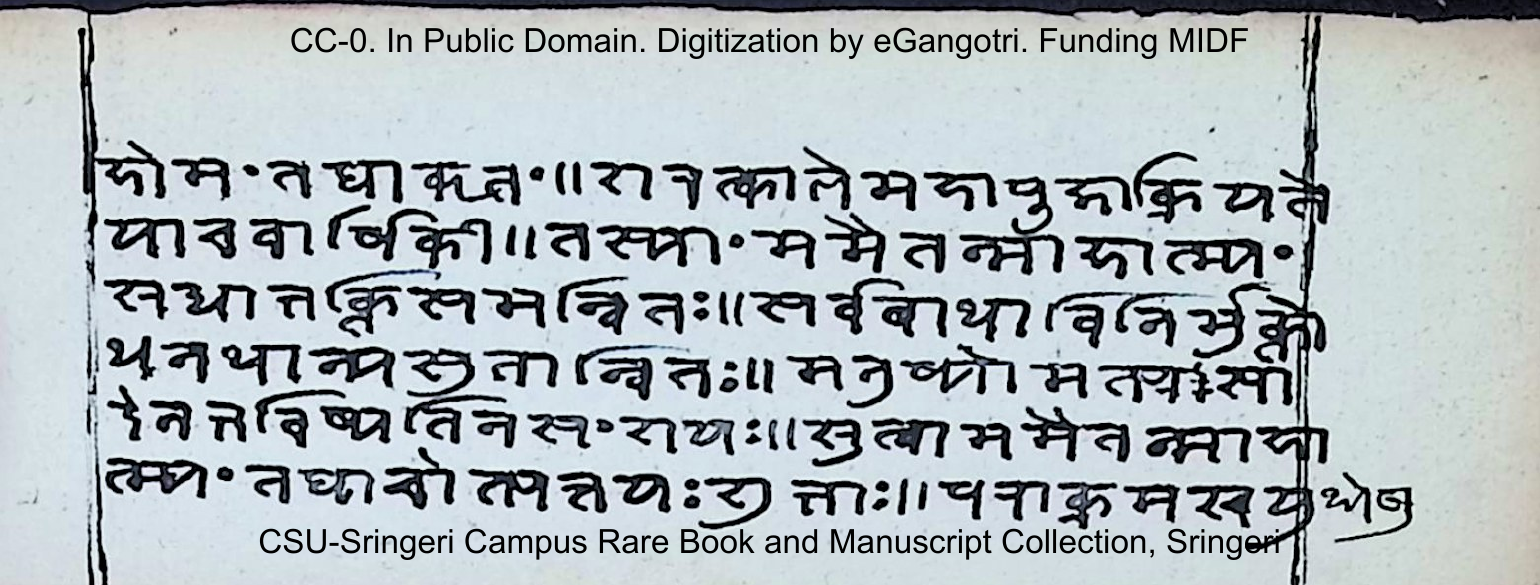 CC-0. In Public Domain. Digitization by eGangotri. Funding MIDF
होमं तथाकृतं॥शरत्काले महापुजाक्रियते
याचवार्षिकी॥तस्यां ममैतन्माहात्म्यं
भक्तिसमन्वितः॥सर्वबाधाविनिर्मुक्तो
धनधान्यसुतान्वितः॥मनुष्यो मत्प्रसा
देनभविष्यतिनसंशयः॥सुत्वाममैतन्माहा
त्म्यं तथाचोत्पत्तयःशुभाः॥पराक्रमं च यु
CSU-Sringeri Campus Rare Book and Manuscript Collection, Sringeri